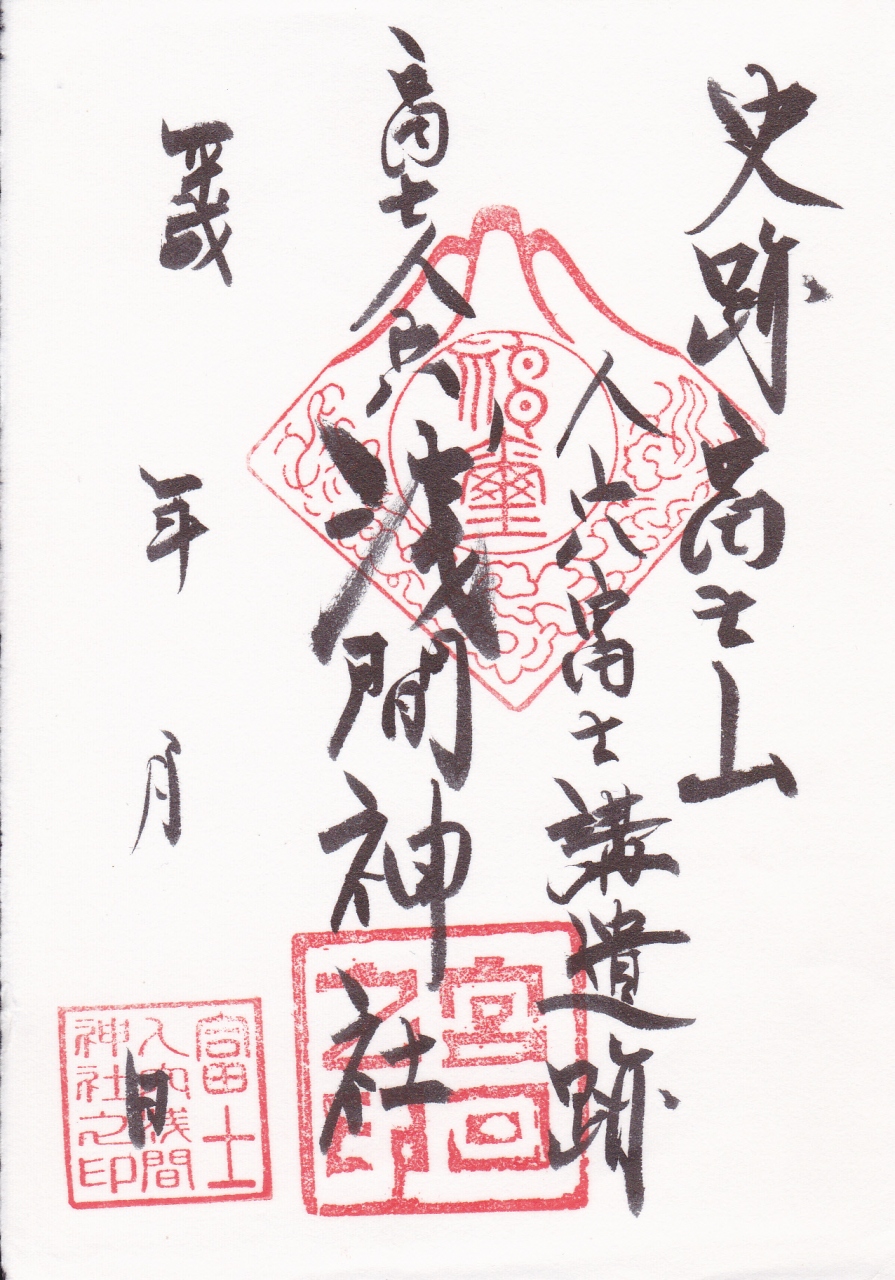 史跡富士山
人穴富士講遺跡
富士人穴浅間神社
平成 年 月 日
宮司之印
富士
人穴浅間
神社之印